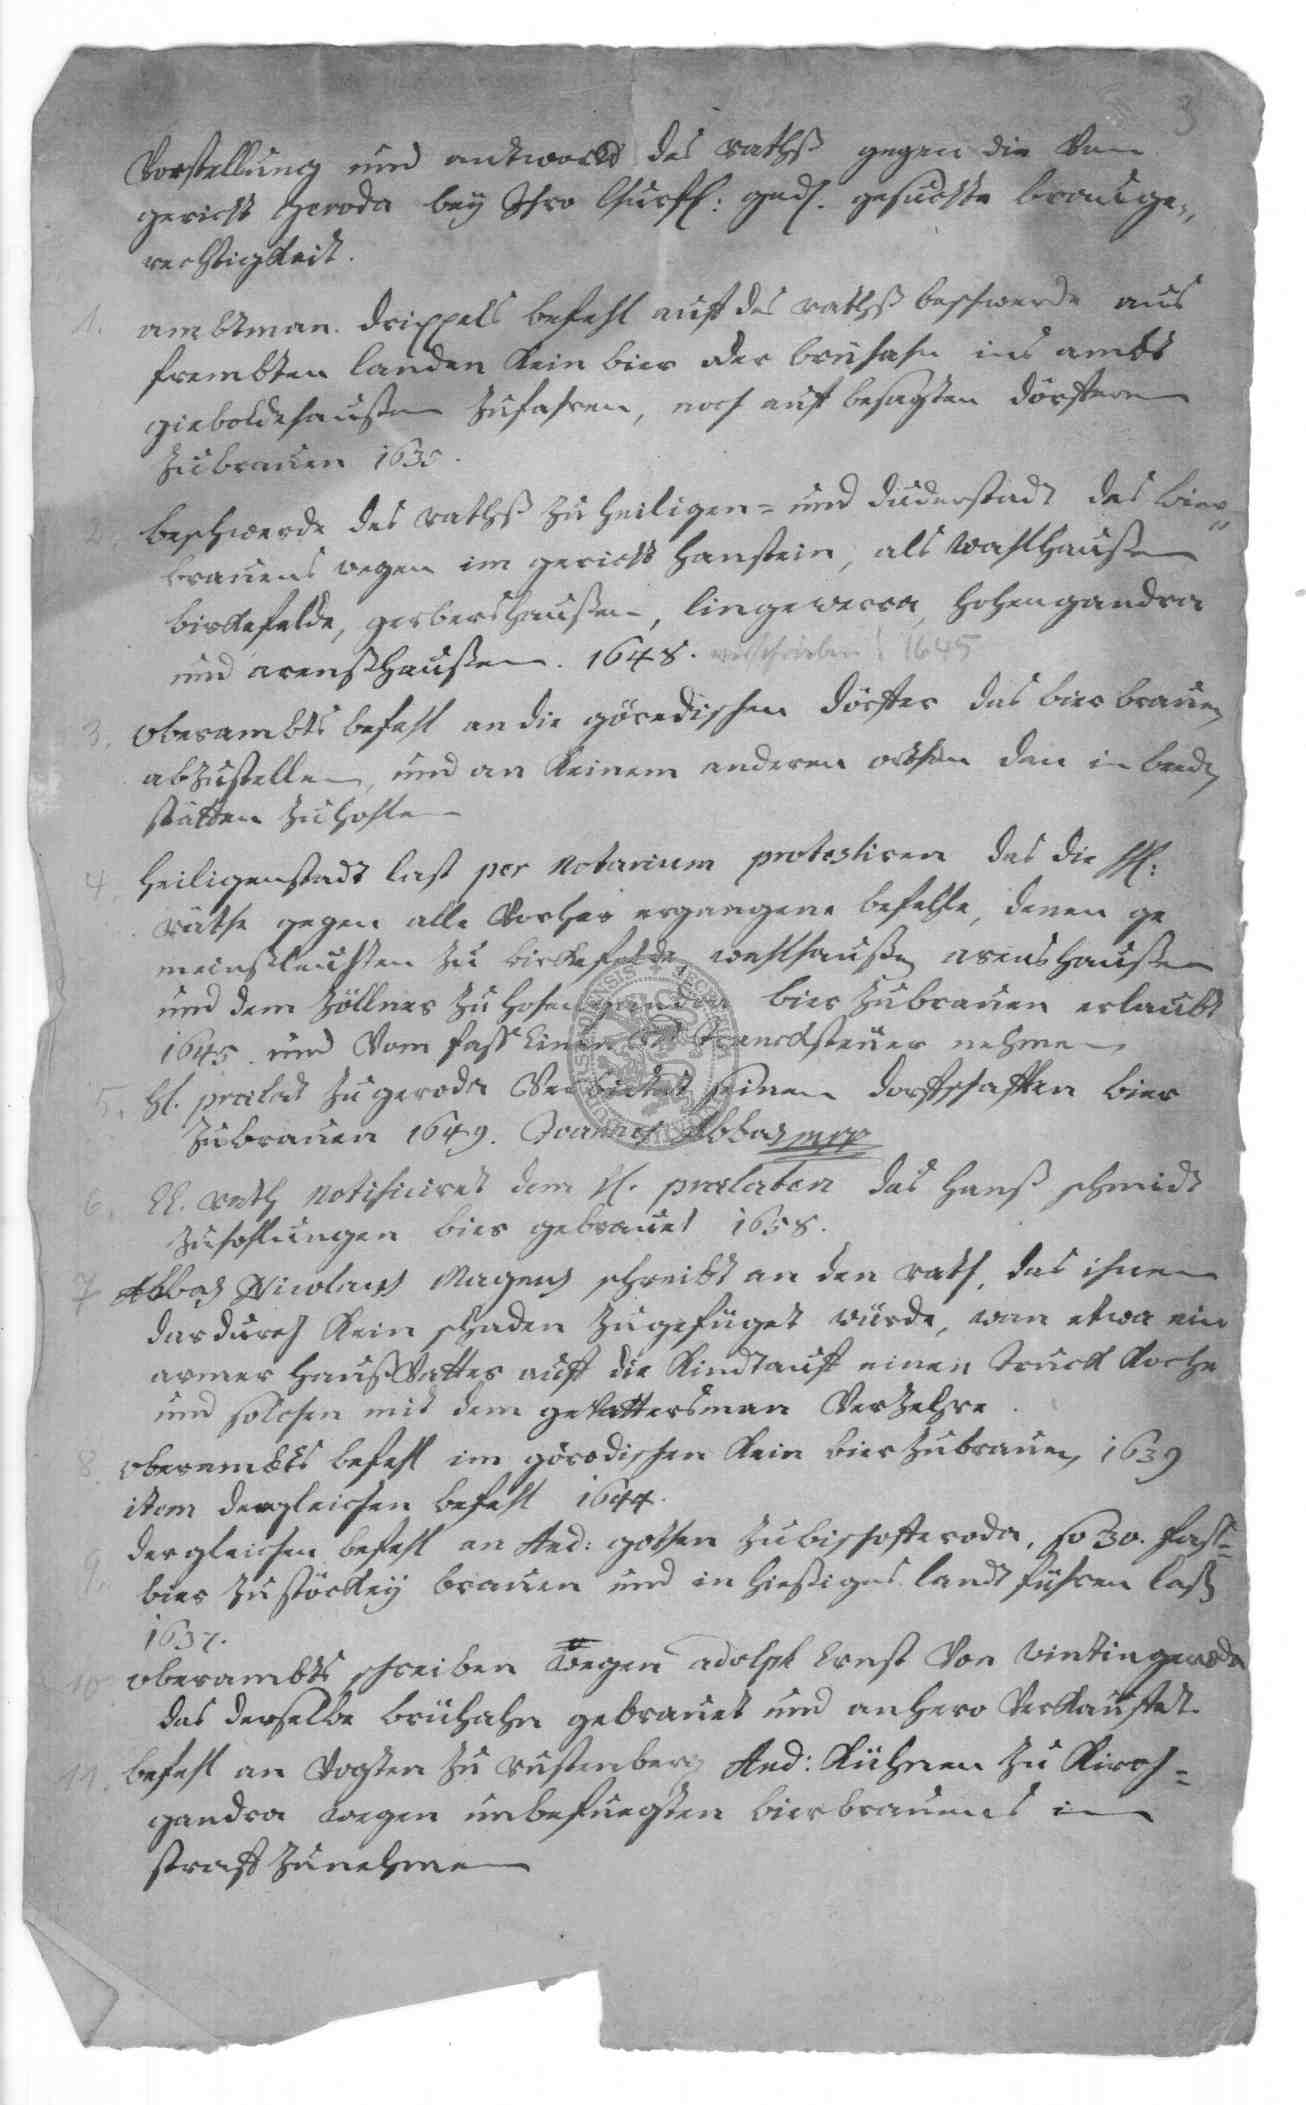 3
Vorstellung und andtwordt des rathß gegen die Von
gericht Geroda bey Ihro Churfl: gnd. gesuchte brauge-
rechtigkeit.
1. ambtman. drippels befehl auff des rathß beschwerde aus
frembten landen kein bier oder brühahn ins ambt
gieboldehaußen Zufahren, noch auff besagten dörffern
Zubrauen 1630.
2. beschwerde des rathß Zu Heiligen- und duderstadt des bier-
brauens wegen im gericht Hanstein, als Wahlhaußen
birkefelde, gerbershaußen, lingewerra, Hohengandra
und arenßhaußen. 1648. verschrieben! 1645
3. oberambts befehl an die görodischen dörffer das bierbrauen
abzustellen, und an keinem anderen orthen den in beeden
stätten Zu hohlen
4. Heiligenstadt last per notarium protestiren das die H:
räthe gegen alle Vorher ergangene befehle, denen ge
meinßleuthen Zu birkefelde, wahlhaußen arenshaußen
und dem Zöllner Zu Hohengandra bier Zubrauen erlaubt
1645. und Vom faß einen trancksteuer nehmen
5. H. prælat Zu geroda Verbietet seinen dorffschafften bier
Zubrauen 1649. Joannes Abbas mpp
6. EE. rath notificiret dem H. prælaten das Hanß schmidt
Zuhollungen bier gebrauet 1658.
7 Abbas Nicolaus Magens schreibt an den rath, das ihnen
dardurch kein schaden Zugefüget würde, wan etwa ein
armer Haußvatter auff die Kindtauff einen trunck koche
und solchen mit dem gevattersman Verzehre.
8. oberambts befehl im görodischen kein bier Zubrauen, 1639
item dergleichen befehl 1644.
9. dergleichen befehl an And: gothen Zubischofferoda, so 30. faß-
bier Zu störkey brauen und in hießiges landt führen laßen
1637.
10. oberambts schreiben wegen adolph Ernst Von Wintingeroda
das derselbe brühahn gebrauet und anhero Verkauffet.
11. befehl an Vogten Zu rustenberg And: Kühnen Zu Kirch-
gandra wegen unbefuegten bierbrauens in
straff Zunehmen